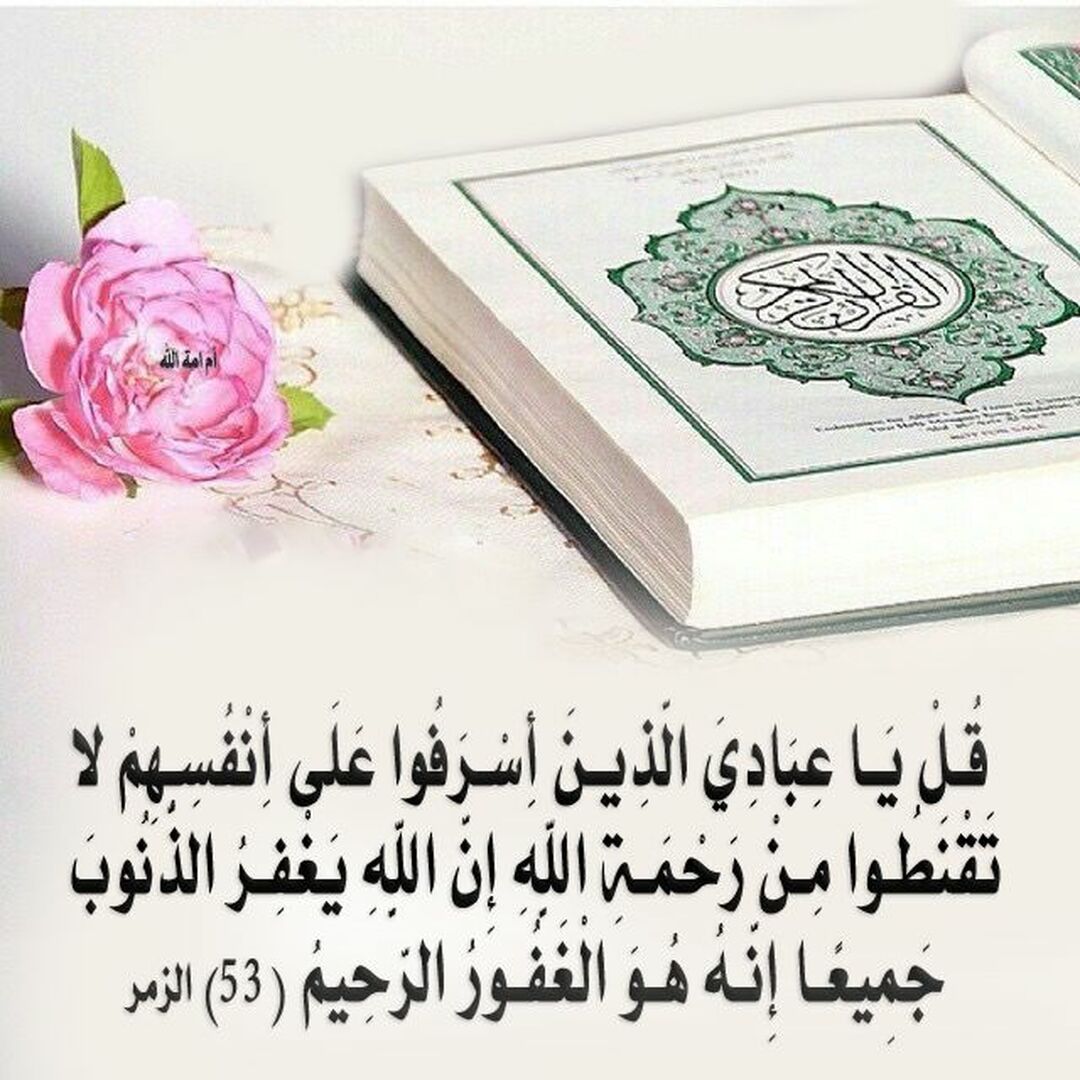 القرآن الكريم
أم امة الله
NOT FOR SALE
قُلْ يَا عِبَادِيَ الَّذِينَ أَسْرَفُوا عَلَى أَنْفُسِهِمْ لا
تَقْنَطُوا مِنْ رَحْمَةِ اللَّهِ إِنَّ اللَّهَ يَغْفِرُ الذُّنُوبَ
جَمِيعًا إِنَّهُ هُوَ الْغَفُورُ الرَّحِيمُ (53) الزمر